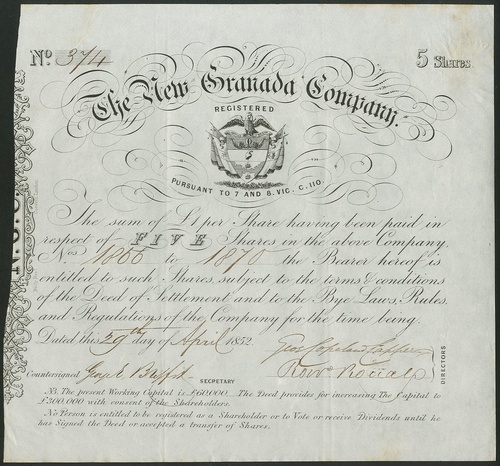 No. 374
5 Shares.
The New Granada Company.
REGISTERED
PURSUANT TO 7 AND 8. VIC. C. 110.
The sum of £1 per Share having been paid in
respect of FIVE Shares in the above Company,
Nos. 1866 to 1870 the Bearer hereof is
entitled to such Shares, subject to the terms & conditions
of the Deed of Settlement and to the Bye Laws, Rules,
and Regulations of the Company for the time being.
Dated this 29th day of April 1852.
Countersigned
SECRETARY
DIRECTORS
NB. The present Working Capital is £60,000. The Deed provides for increasing The Capital to
£300,000 with consent of the Shareholders.
No Person is entitled to be registered as a Shareholder or to Vote or receive Dividends until he
has Signed the Deed or accepted a transfer of Shares.